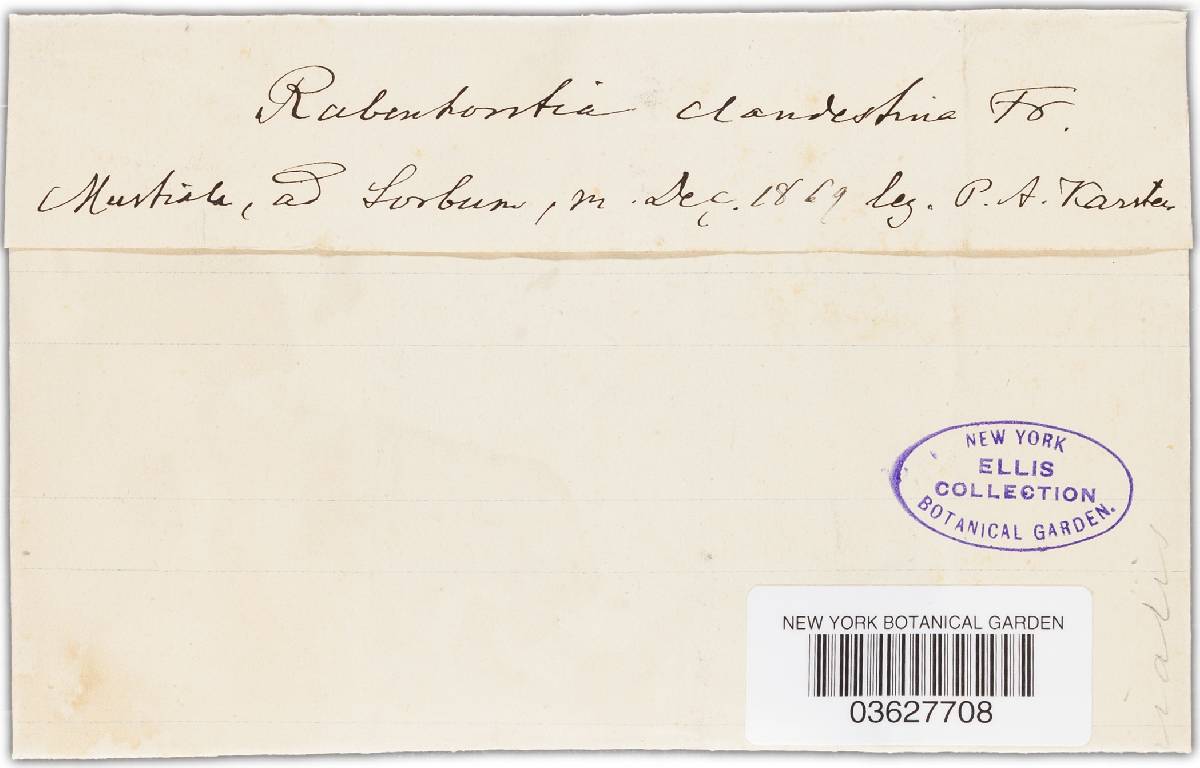 Rabenhorstia clandestina Fr.
Mustiala, ad Sorbum, m. Dec. 1869 leg. P. A. Karsten
NEW YORK
ELLIS
COLLECTION
BOTANICAL GARDEN.
NEW YORK BOTANICAL GARDEN
03627708